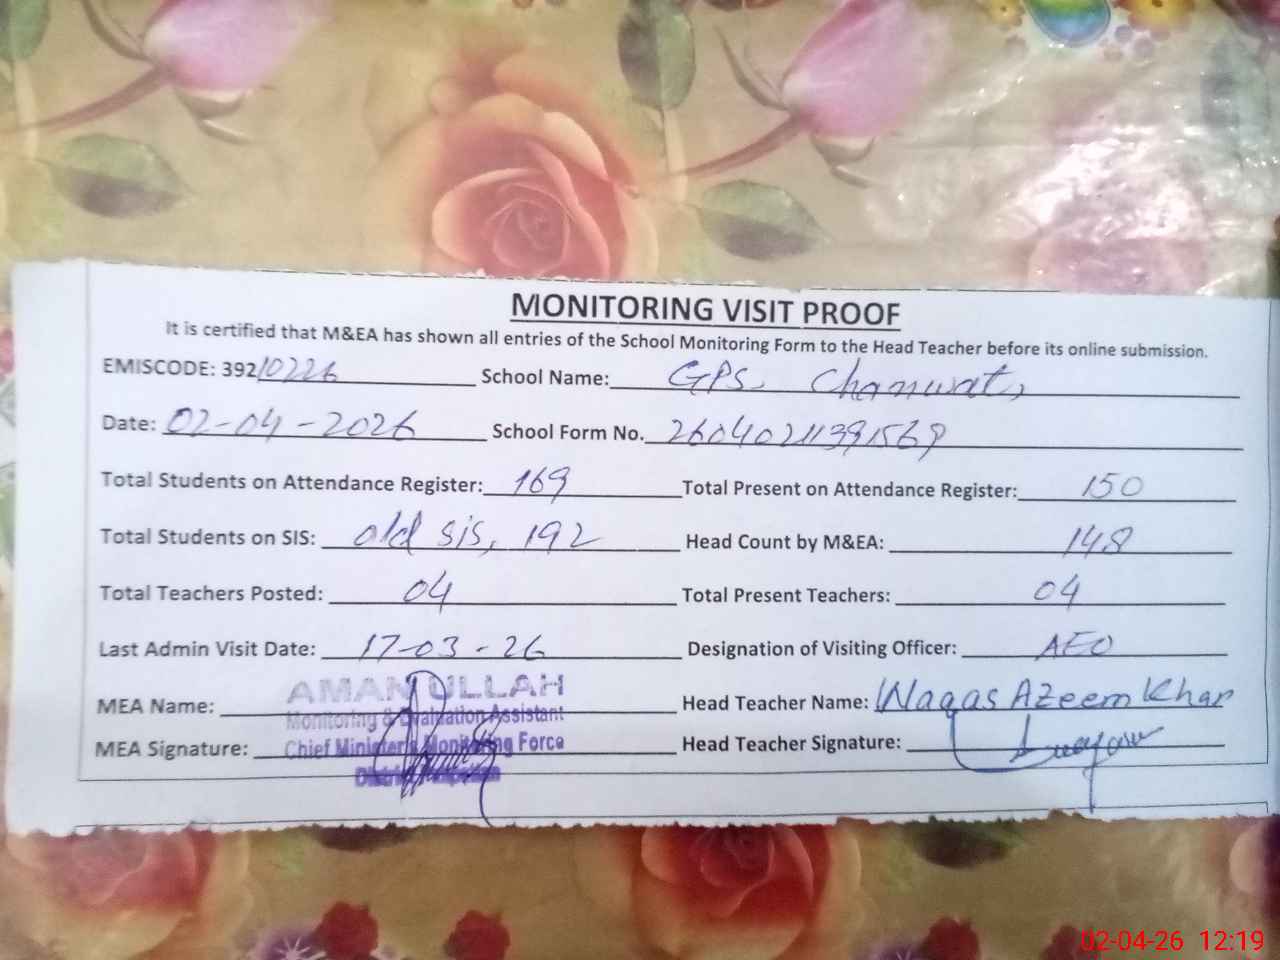 MONITORING VISIT PROOF
It is certified that M&EA has shown all entries of the School Monitoring Form to the Head Teacher before its online submission.
EMISCODE: 39210226 School Name: GPS, Chanwat,
Date: 02-04-2026 School Form No. 26040211391569
Total Students on Attendance Register: 169 Total Present on Attendance Register: 150
Total Students on SIS: old sis, 192 Head Count by M&EA: 148
Total Teachers Posted: 04 Total Present Teachers: 04
Last Admin Visit Date: 17-03-26 Designation of Visiting Officer: AEO
MEA Name: AMAN ULLAH Head Teacher Name: Waqas Azeem Khan
Monitoring & Evaluation Assistant
MEA Signature: Chief Minister's Monitoring Force Head Teacher Signature:
02-04-26 12:19